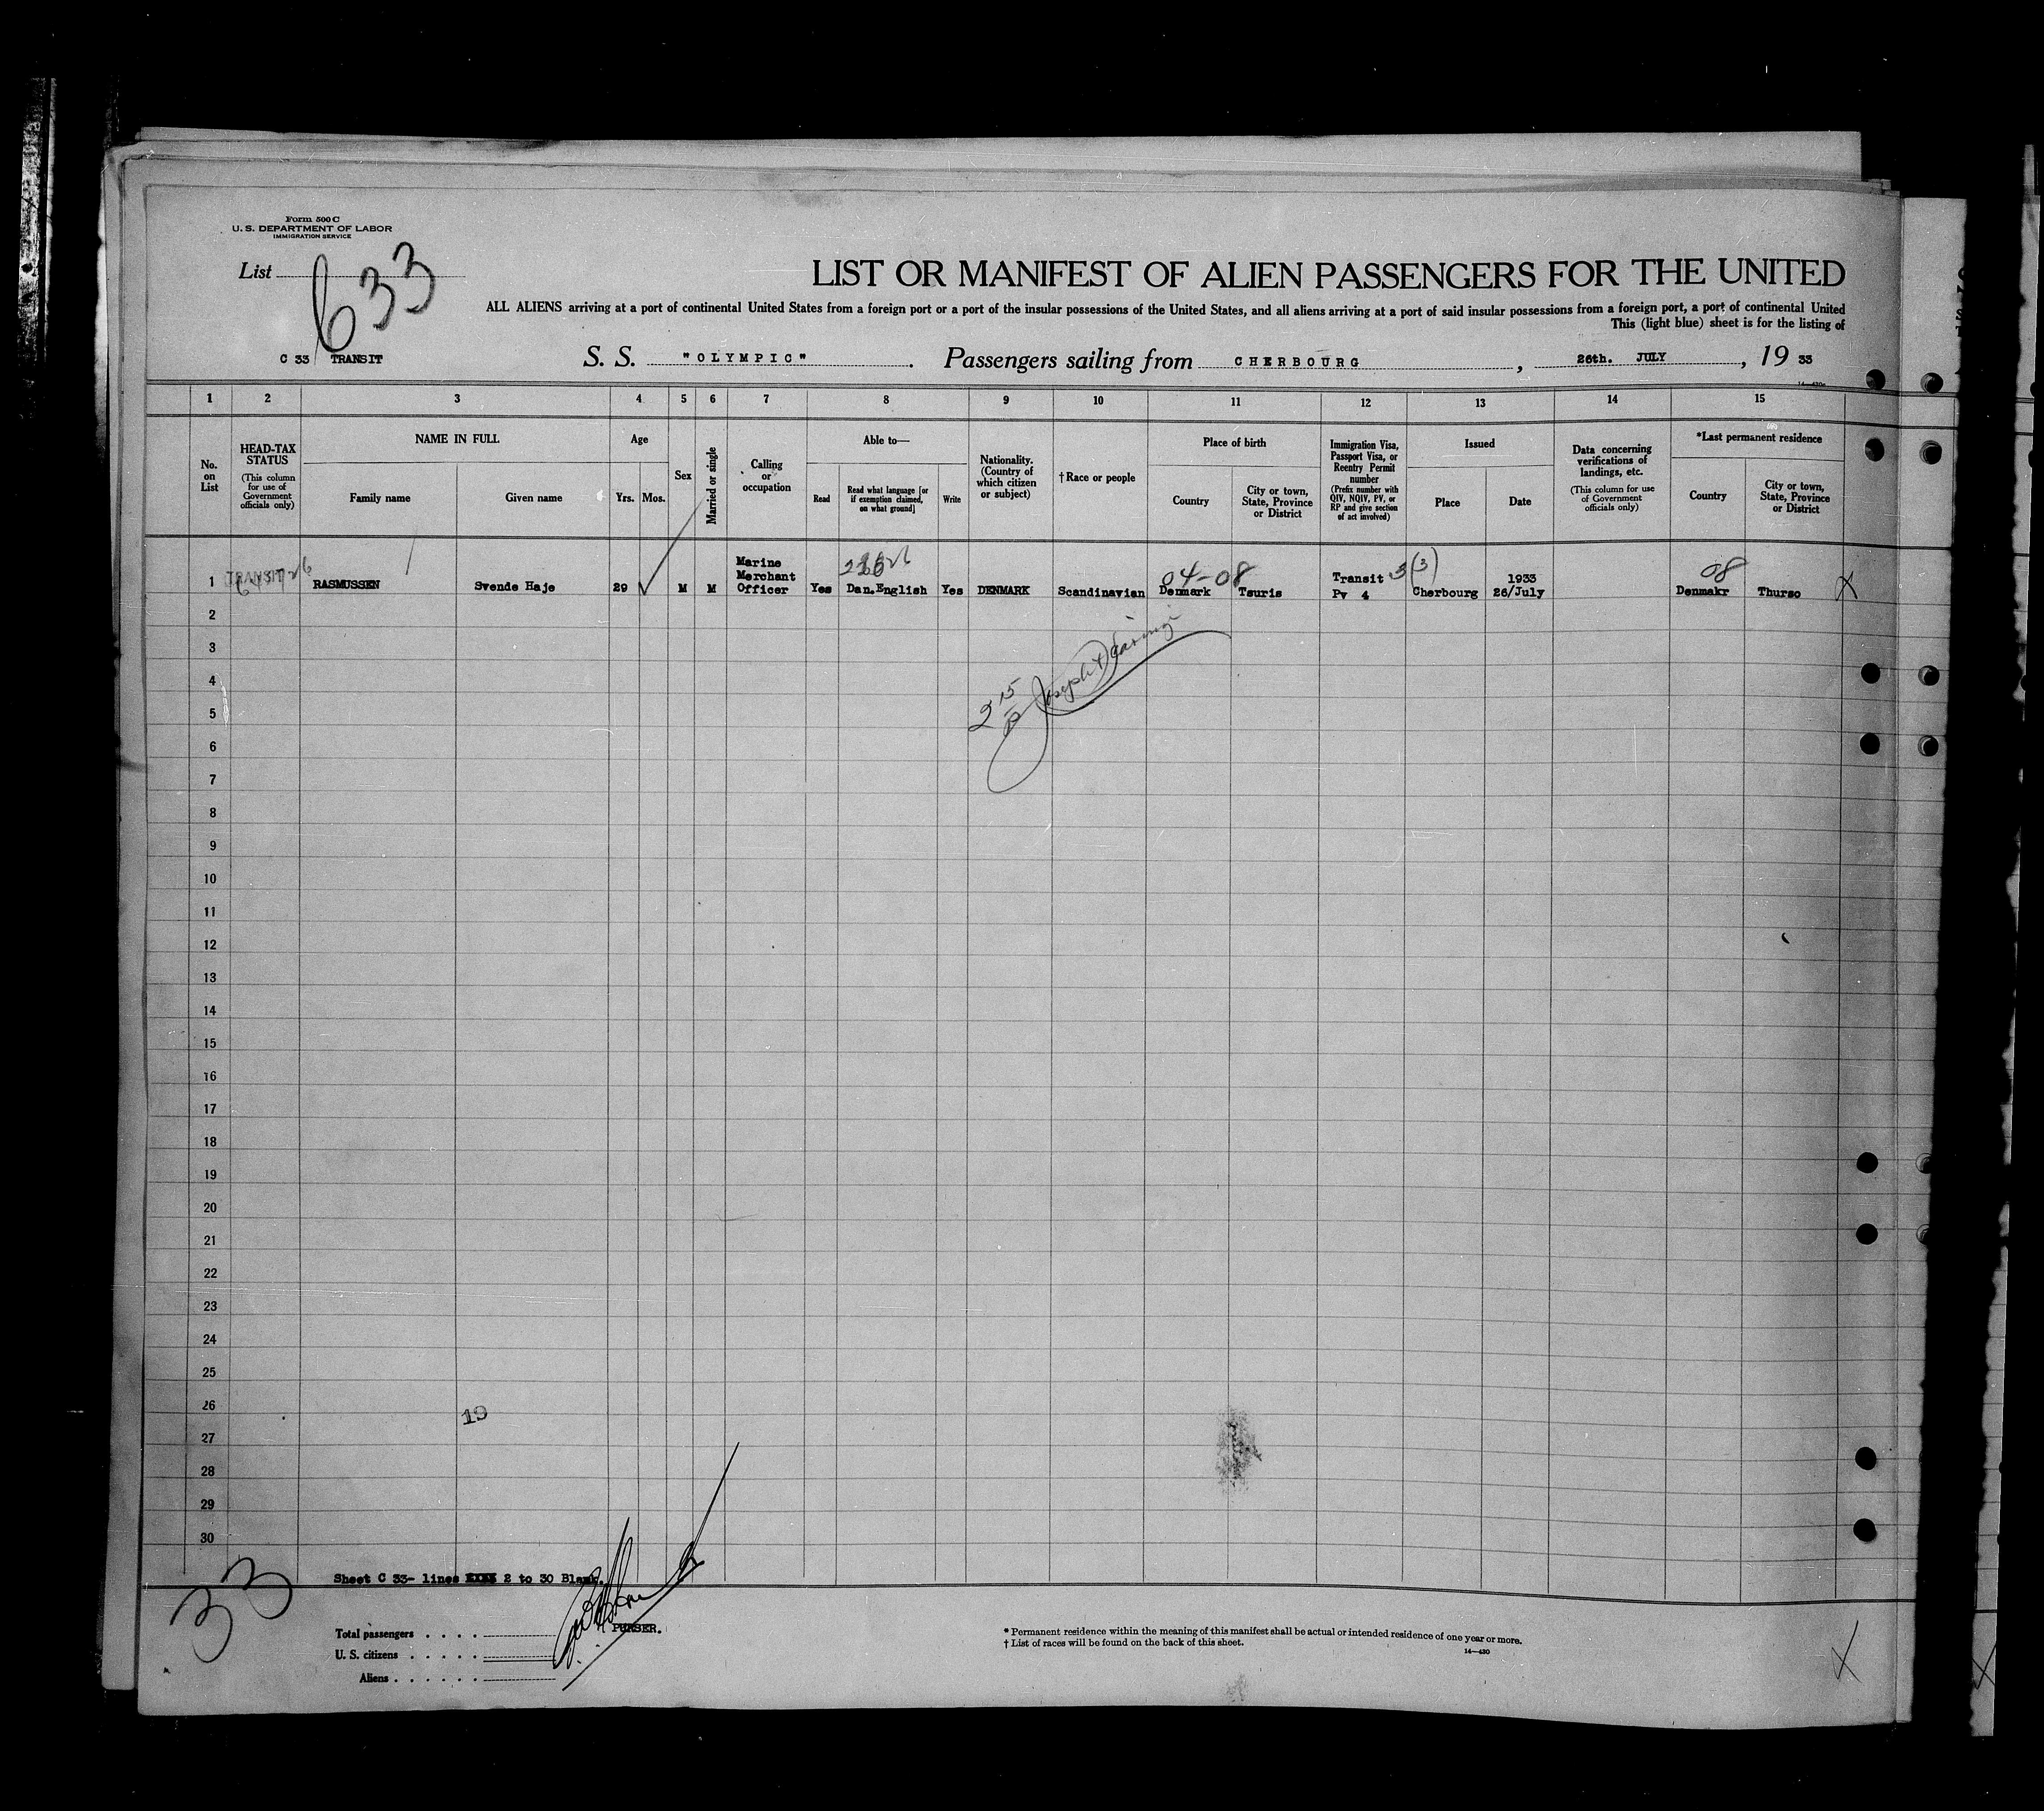 Form 500 C
U. S. DEPARTMENT OF LABOR
IMMIGRATION SERVICE
List
633
C 33 TRANSIT
LIST OR MANIFEST OF ALIEN PASSENGERS FOR THE UNITED
ALL ALIENS arriving at a port of continental United States from a foreign port or a port of the insular possessions of the United States, and all aliens arriving at a port of said insular possessions from a foreign port, a port of continental United
This (light blue) sheet is for the listing of
S. S. "OLYMPIC". Passengers sailing from CHERBOURG, 26th. JULY, 19 33
1 2 3 4 5 6 7 8 9 10 11 12 13 14 15
No. on List
HEAD-TAX STATUS
(This column for use of Government officials only)
NAME IN FULL
Family name
Given name
Age
Yrs. Mos.
Sex
Married or single
Calling or occupation
Able to—
Read
Read what language [or if exemption claimed, on what ground]
Write
Nationality. (Country of which citizen or subject)
†Race or people
Place of birth
Country
City or town, State, Province or District
Immigration Visa, Passport Visa, or Reentry Permit number
(Prefix number with QIV, NQIV, PV, or RP and give section of act involved)
Issued
Place
Date
Data concerning verifications of landings, etc.
(This column for use of Government officials only)
*Last permanent residence
Country
City or town, State, Province or District
04-08
3(3)
08
1 TRANSIT RASMUSSEN Svende Haje 29 M M Marine Merchant Officer Yes Dan.English Yes DENMARK Scandinavian Denmark Tsuris Transit Pv 4 Cherbourg 1933 26/July Denmakr Thurso X
2
3
4
5
6
7
8
9
10
11
12
13
14
15
16
17
18
19
20
21
22
23
24
25
26
19
27
28
29
30
33
Sheet C 33- lines 2 to 30 Blank.
PURSER.
Total passengers . . . .
U. S. citizens . . . . .
Aliens . . . . . .
* Permanent residence within the meaning of this manifest shall be actual or intended residence of one year or more.
† List of races will be found on the back of this sheet.
14—430
X